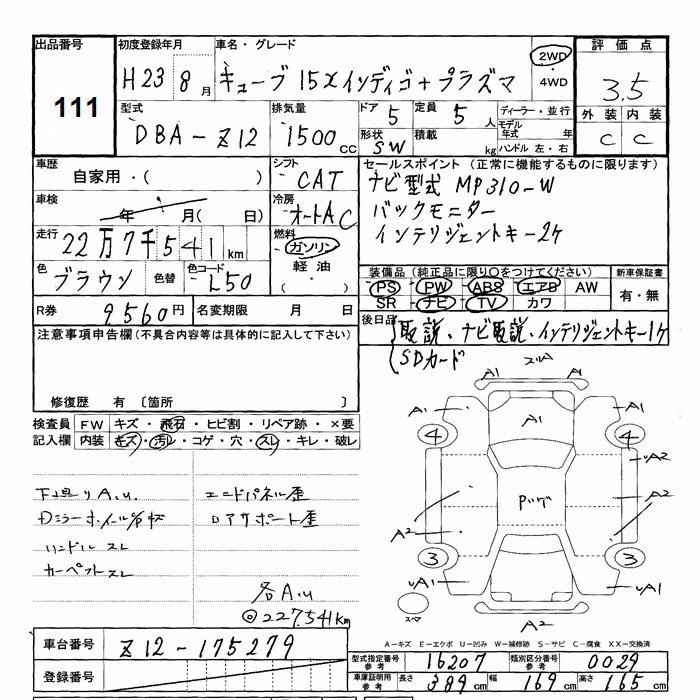 出品番号 初度登録年月 車名・グレード 2WD 評価点
111 H23 8月 キューブ 15X インディゴ+プラズマ ・4WD 3.5
型式 排気量 ドア 5 定員 5人 ディーラー・並行 外装 内装
DBA-Z12 1500cc 形状 SW 積載 kg モデル年式 年 ハンドル 左・右 C C
車歴 シフト セールスポイント (正常に機能するものに限ります)
自家用・( ) CAT ナビ型式 MP310-W
車検 冷房 バックモニター
年 月( 日) オートAC インテリジェントキー2ケ
走行 燃料
22万7千541km ガソリン
色 色替 色コード 軽油 装備品 (純正品に限り○をつけてください) 新車保証書
ブラウン L50 ・( ) PS PW ABS エアB AW 有・無
R券 9560円 名変期限 月 日 SR ナビ TV カワ
注意事項申告欄(不具合内容等は具体的に記入して下さい) 後日品 取説、ナビ取説、インテリジェントキー1ケ
SDカード
修復歴 有 〔箇所 〕
検査員 FW キズ・飛石・ヒビ割・リペア跡・×要
記入欄 内装 キズ・汚レ・コゲ・穴・スレ・キレ・破レ
A1 A1
A1 A1 A1
4 4
UA2
Pバゲ A2
A2
3 3
UA1 UA1
スペア A2
下廻りA.u. エンドパネル歪
リアサポート歪
ハンドルスレ
カーペットスレ
各A.u
◎227541km
A-キズ E-エクボ U-凹み W-補修跡 S-サビ C-腐食 XX-交換済
車台番号 Z12-175279
型式指定番号 参考 16207 類別区分番号 参考 0029
登録番号
車庫証明用 参考 長さ 389cm 幅 169cm 高さ 165cm